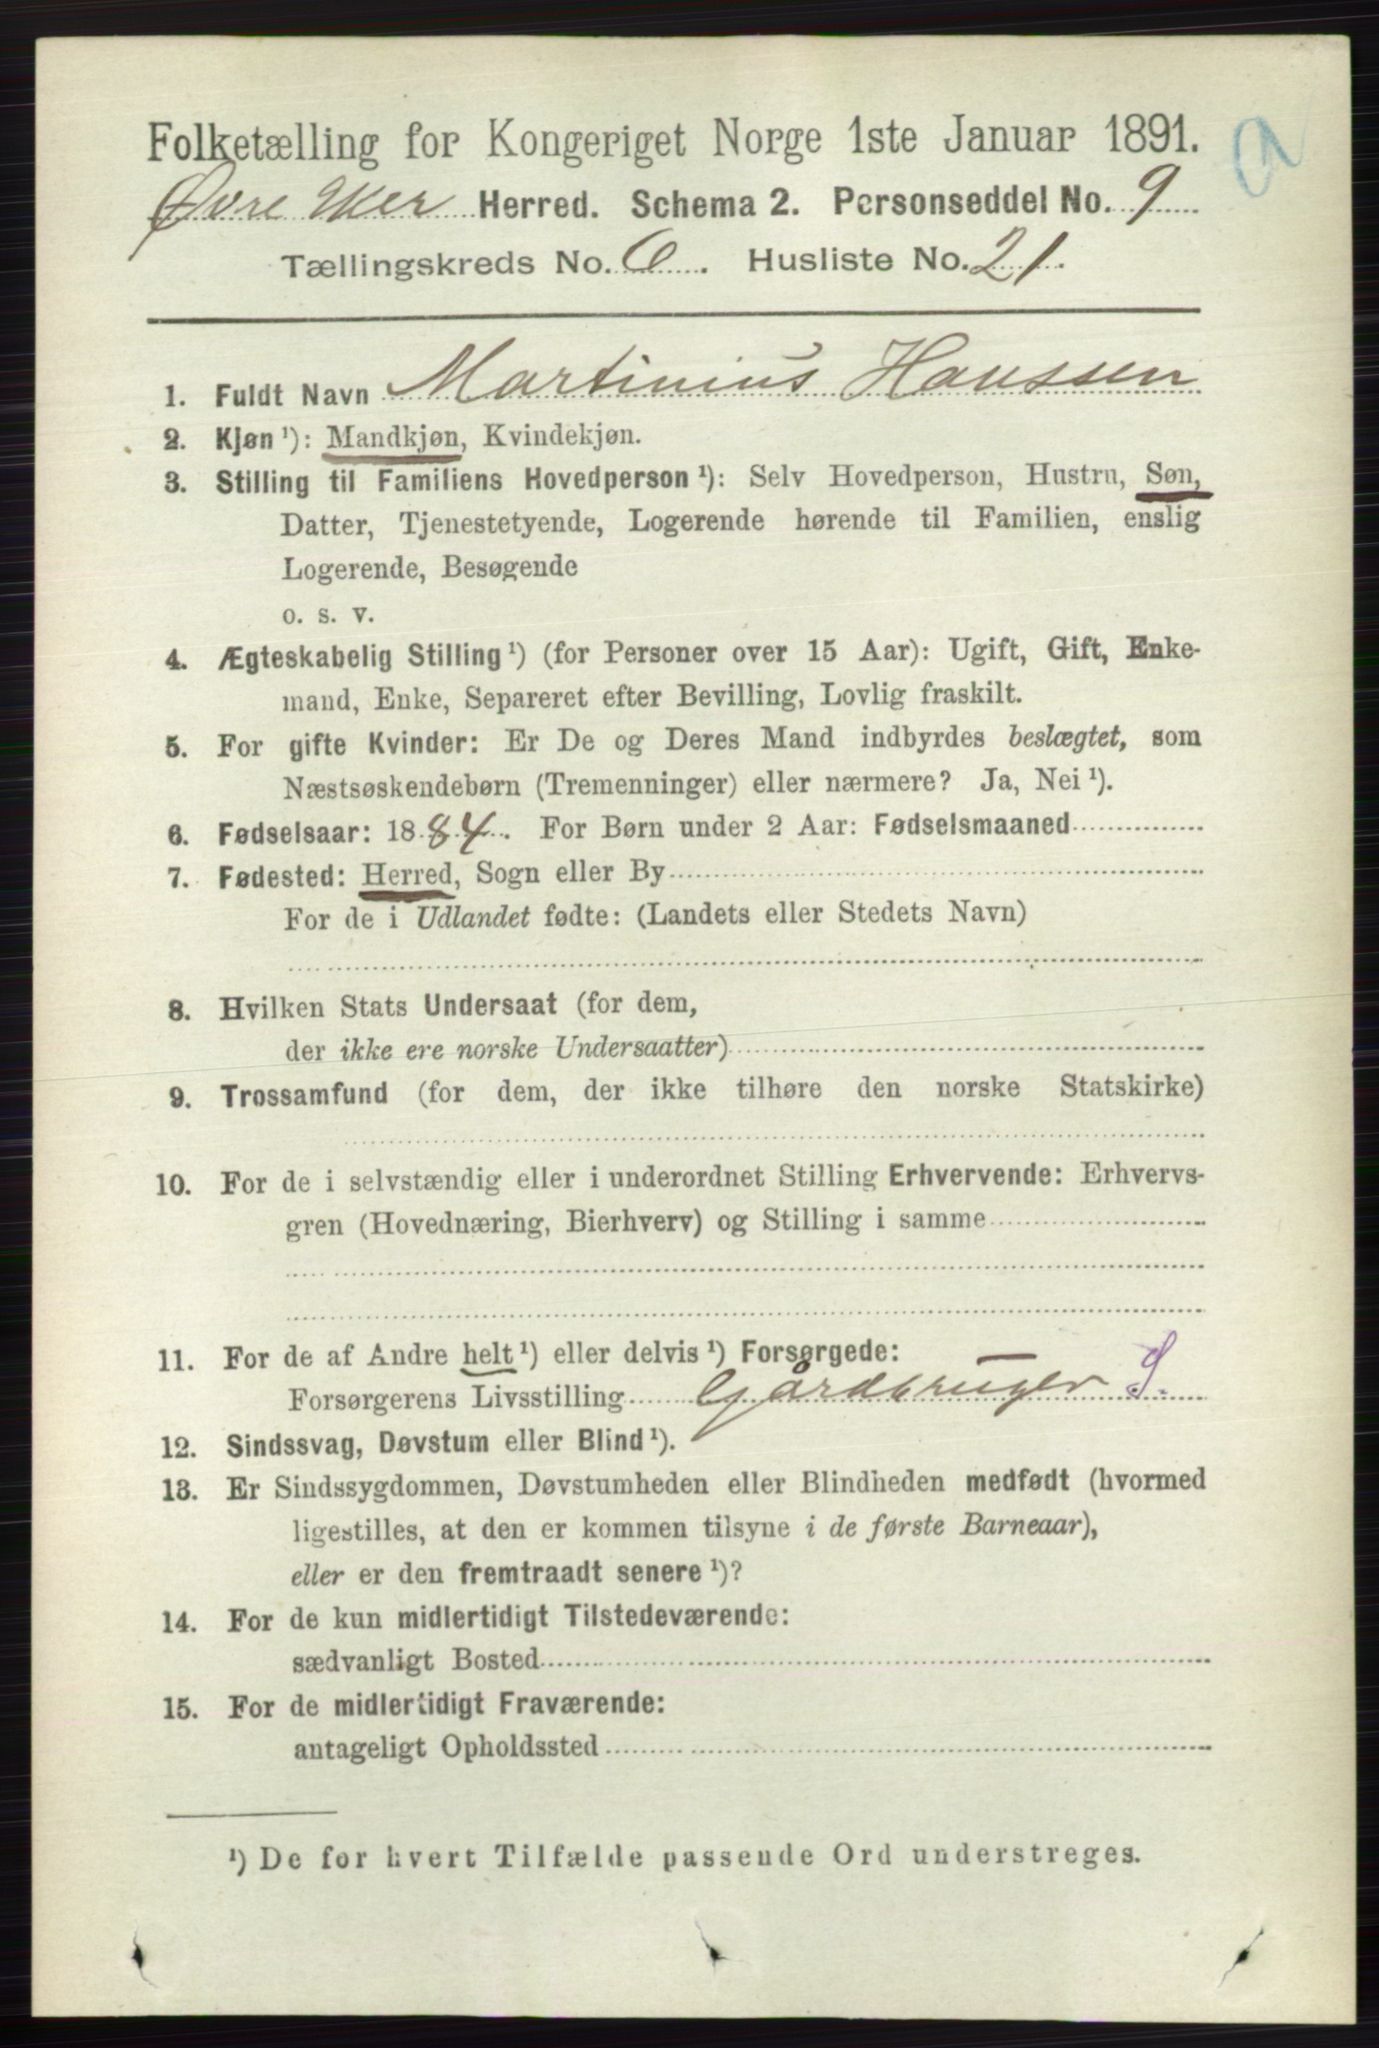 Folketælling for Kongeriget Norge 1ste Januar 1891.
Øvre Eker Herred. Schema 2. Personseddel No. 9
Tællingskreds No. 6. Husliste No. 21.
1. Fuldt Navn Martinius Hanssen
2. Kjøn ¹): Mandkjøn, Kvindekjøn.
3. Stilling til Familiens Hovedperson ¹): Selv Hovedperson, Hustru, Søn,
Datter, Tjenestetyende, Logerende hørende til Familien, enslig
Logerende, Besøgende
o. s. v.
4. Ægteskabelig Stilling ¹) (for Personer over 15 Aar): Ugift, Gift, Enke-
mand, Enke, Separeret efter Bevilling, Lovlig fraskilt.
5. For gifte Kvinder: Er De og Deres Mand indbyrdes beslægtet, som
Næstsøskendebørn (Tremenninger) eller nærmere? Ja, Nei ¹).
6. Fødselsaar: 1884. For Børn under 2 Aar: Fødselsmaaned
7. Fødested: Herred, Sogn eller By
For de i Udlandet fødte: (Landets eller Stedets Navn)
8. Hvilken Stats Undersaat (for dem,
der ikke ere norske Undersaatter)
9. Trossamfund (for dem, der ikke tilhøre den norske Statskirke)
10. For de i selvstændig eller i underordnet Stilling Erhvervende: Erhvervs-
gren (Hovednæring, Bierhverv) og Stilling i samme
11. For de af Andre helt ¹) eller delvis ¹) Forsørgede:
Forsørgerens Livsstilling Gårdbruger S.
12. Sindssvag, Døvstum eller Blind ¹).
13. Er Sindssygdommen, Døvstumheden eller Blindheden medfødt (hvormed
ligestilles, at den er kommen tilsyne i de første Barneaar),
eller er den fremtraadt senere ¹)?
14. For de kun midlertidigt Tilstedeværende:
sædvanligt Bosted
15. For de midlertidigt Fraværende:
antageligt Opholdssted
¹) De for hvert Tilfælde passende Ord understreges.